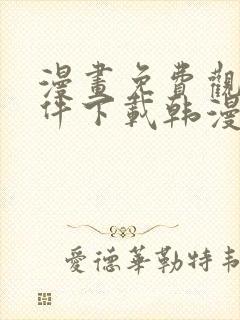 漫畫免費觀
件下載韩漫
愛德華勒特韦